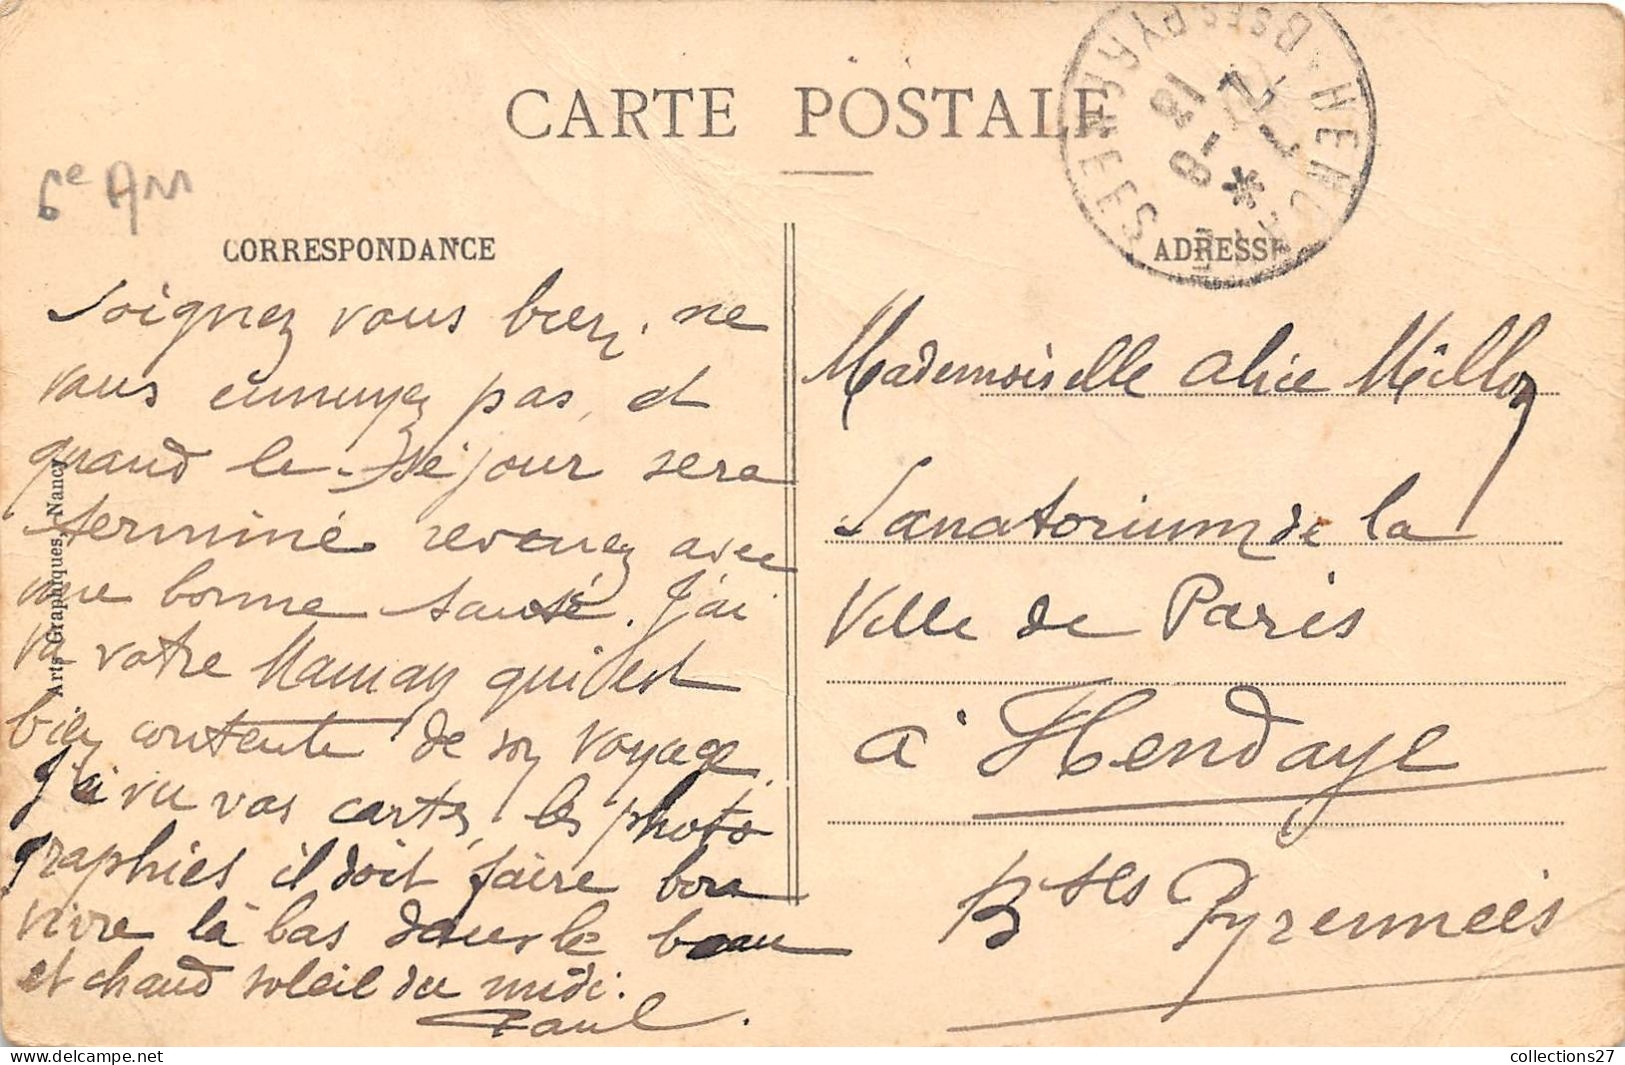 CARTE POSTALE
6e Arr
CORRESPONDANCE
Soignez vous bien, ne
vous ennuyez pas, et
quand le séjour sera
terminé revenez avec
une bonne santé. J'ai
vu votre Maman qui est
bien contente de son voyage.
J'ai vu vos cartes, les photo
graphies il doit faire bon
vivre là bas dans le beau
et chaud soleil du midi.
Paul.
Arts Graphiques, Nancy
ADRESSE
Mademoiselle Alice Millon
Sanatorium de la
Ville de Paris
à Hendaye
Bses Pyrennées
HENDAYE
Bses PYRENEES
18
8
collections27